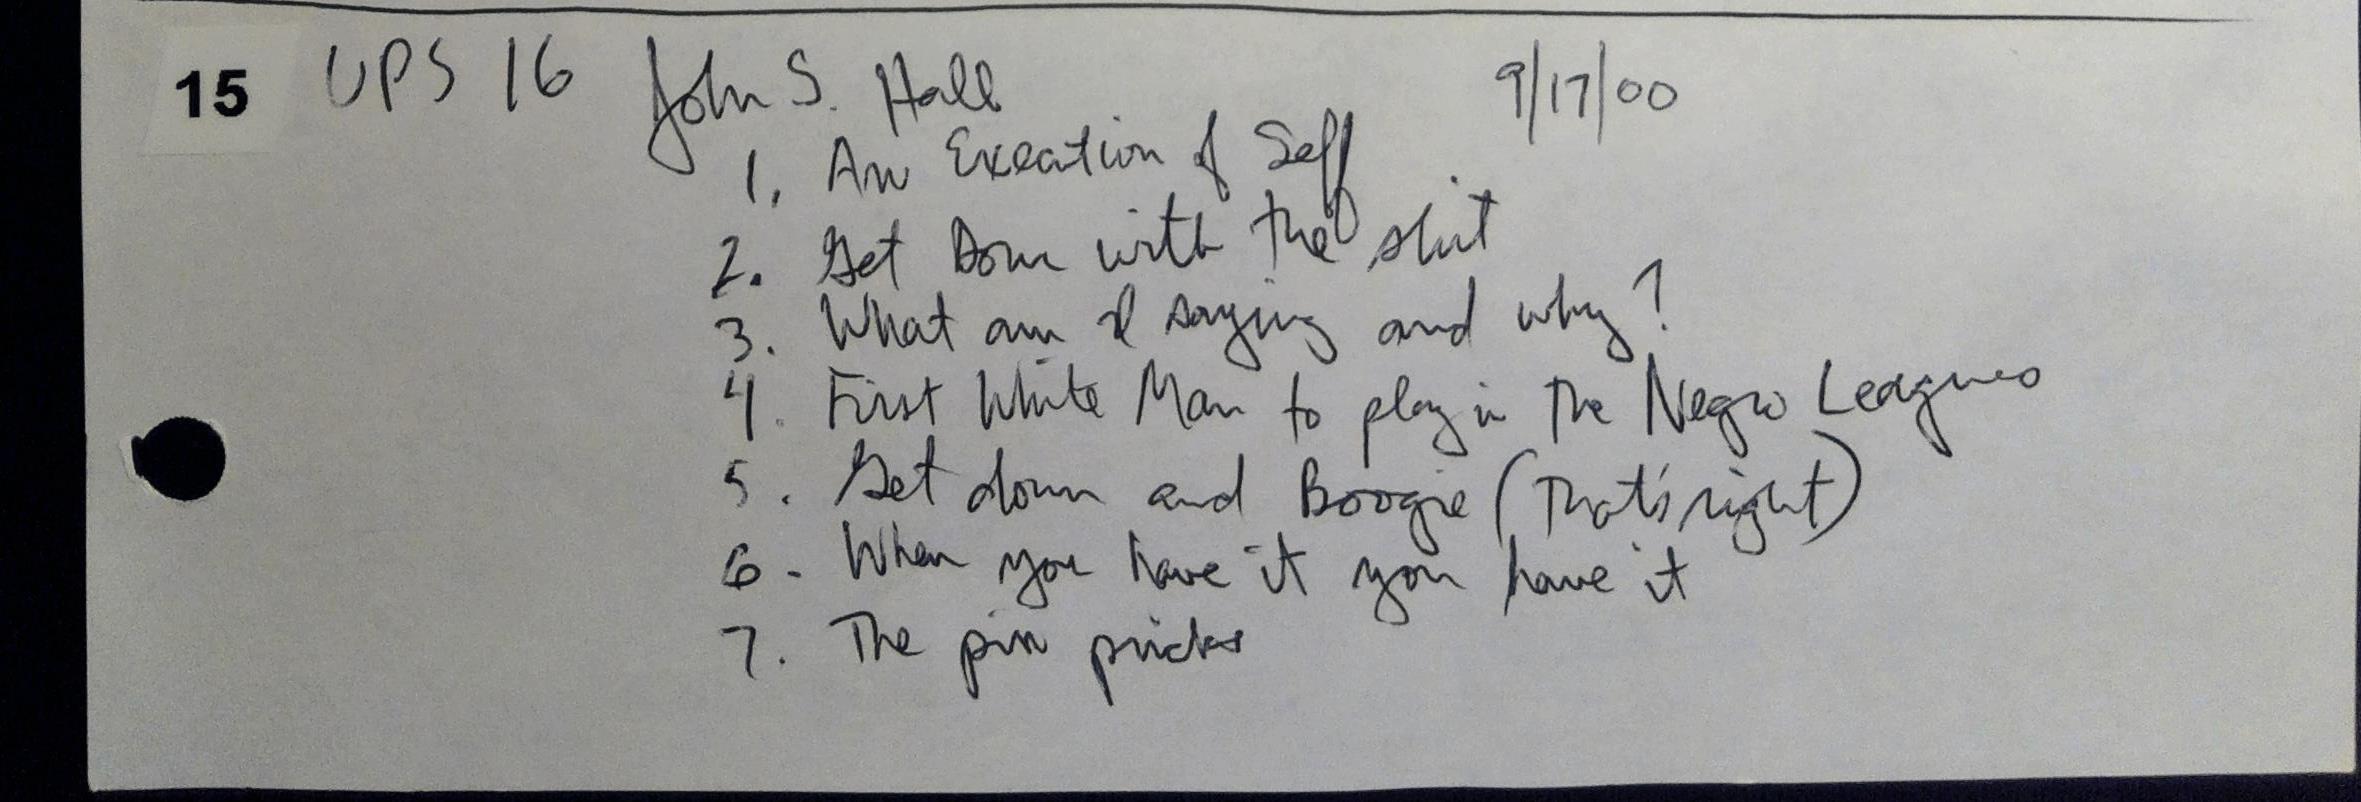 15 UPS 16 John S. Hall 9/17/00
1. An Execution of Self
2. Get Down with the shit
3. What am I saying and why?
4. First White Man to play in the Negro Leagues
5. Get down and Boogie (That's right)
6. When you have it you have it
7. The pin pricks